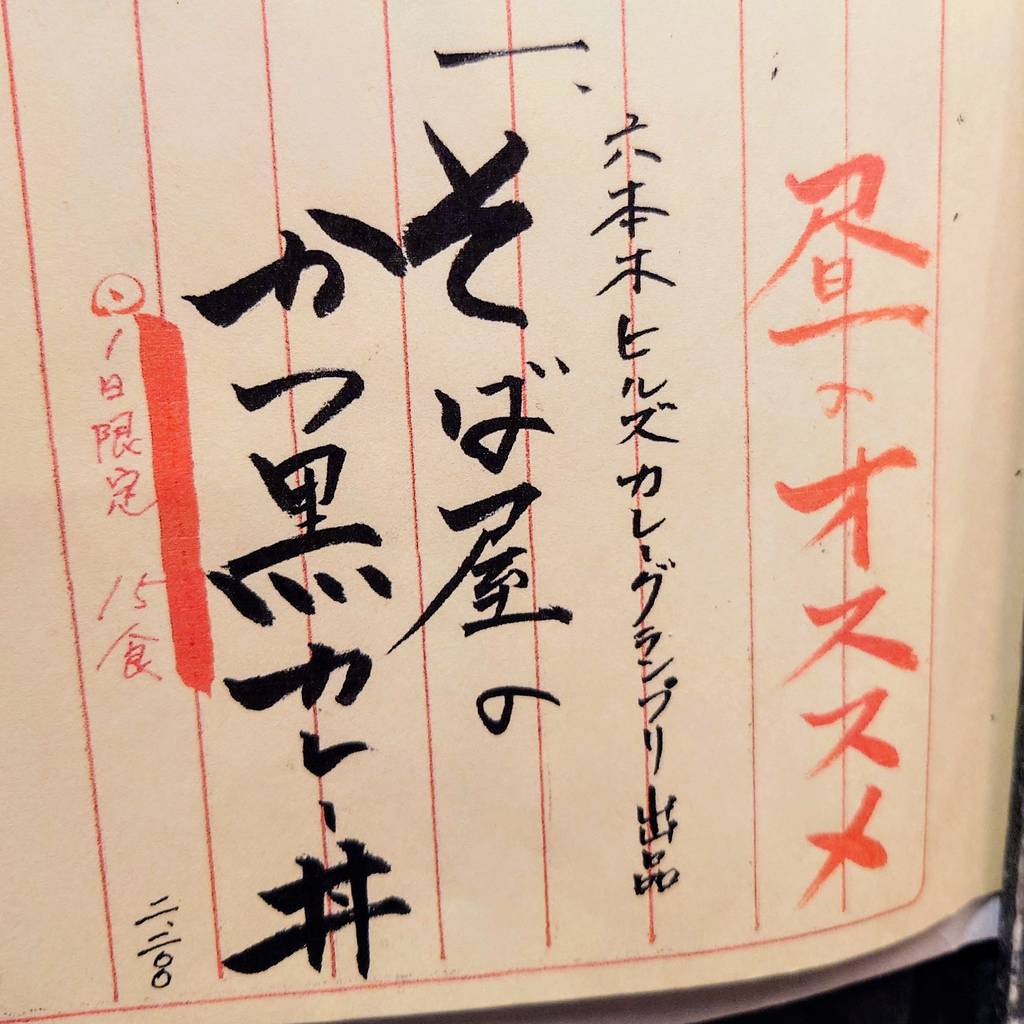 昼のオススメ
六本木ヒルズカレーグランプリ出品
一、そば屋の
かつ黒カレー丼
1日限定 15食
二、二〇〇